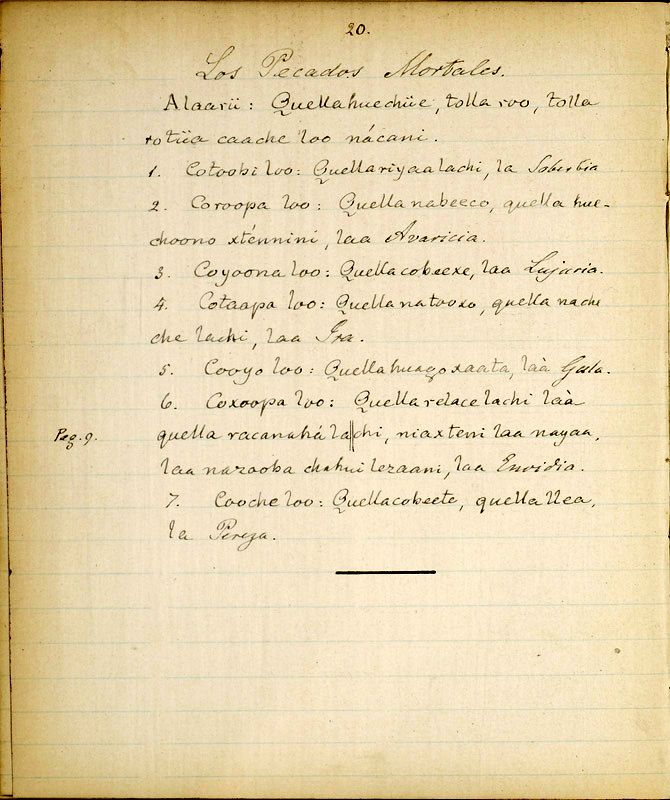 20.
Los Pecados Mortales.
Alaarii: Quellahuechiie, tolla roo, tolla
rotiia caache loo nácani.
1. Cotoobi loo: Quellariyaalachi, la Soberbia
2. Coroopa loo: Quellanabeeco, quella hue-
choono xténnini, laa Avaricia.
3. Coyoona loo: Quellacobeexe, laa Lujuria.
4. Cotaapa loo: Quellanatooxo, quella nache
che lachi, laa Ira.
5. Cooyo loo: Quellahuagoxaata, laà Gula.
6. Coxoopa loo: Quellarelace lachi laà
Pag. 9. quella racanahá lachi, niaxteni laa nayaa,
laa nazooba chahui lezaani, laa Envidia.
7. Cooche loo: Quellacobeete, quella llea,
la Pereza.